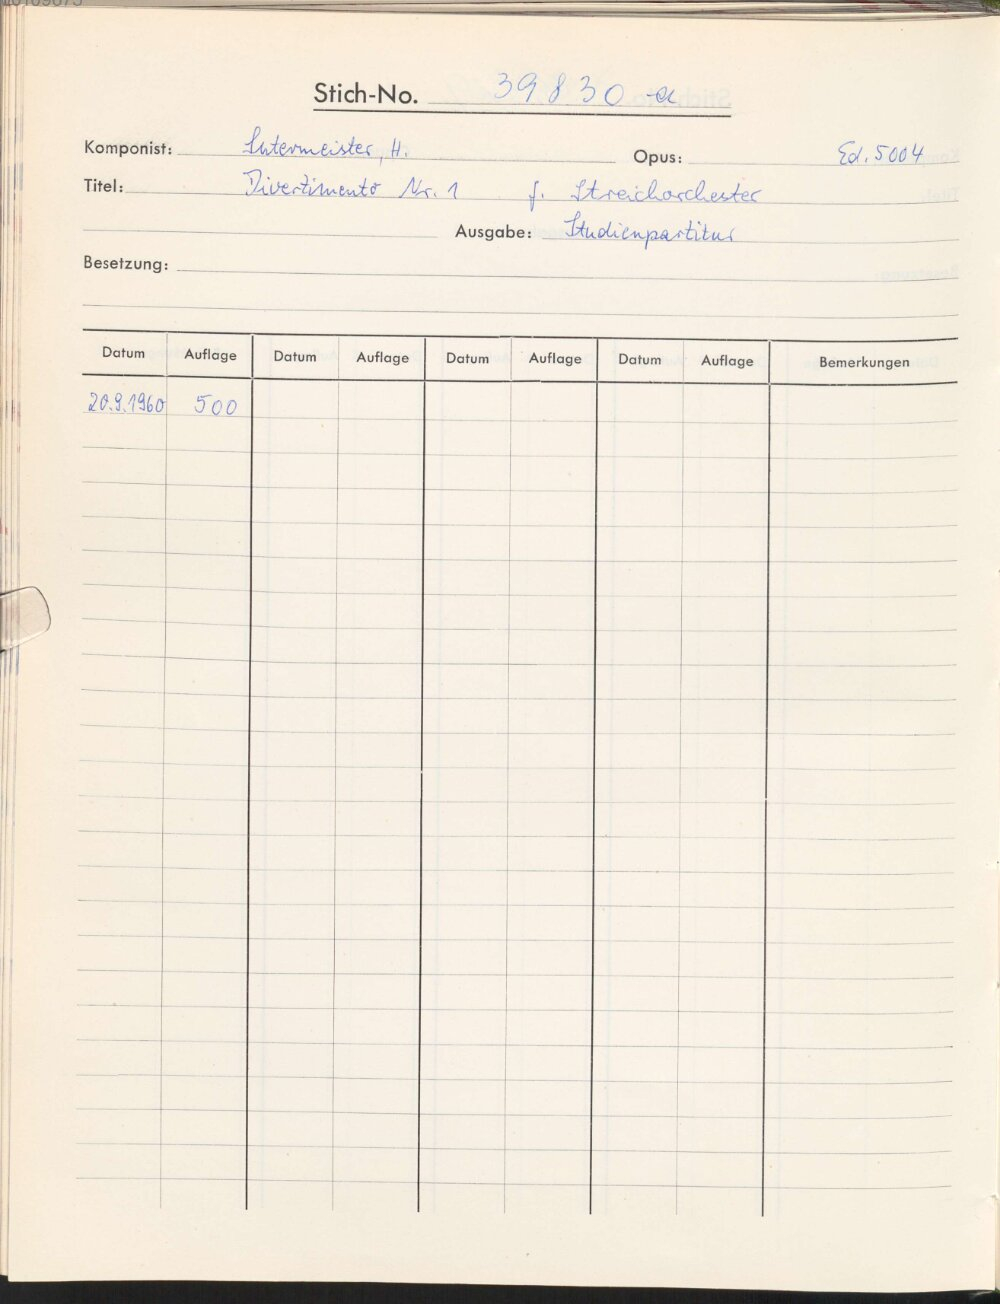 Stich-No. 39830-a
Komponist: Sutermeister, H. Opus: Ed. 5004
Titel: Divertimento Nr. 1 f. Streichorchester
Ausgabe: Studienpartitur
Besetzung:
Datum Auflage Datum Auflage Datum Auflage Datum Auflage Bemerkungen
20.9.1960 500